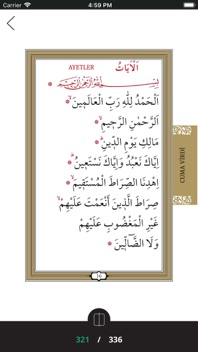 Carrier 4:59 PM
AYETLER اَلْاٰيَاتُ
بِسْمِ اللّٰهِ الرَّحْمٰنِ الرَّحِيمِ
اَلْحَمْدُ لِلّٰهِ رَبِّ الْعَالَمِينَ
اَلرَّحْمٰنِ الرَّحِيمِ
مَالِكِ يَوْمِ الدِّينِ
اِيَّاكَ نَعْبُدُ وَاِيَّاكَ نَسْتَعِينُ
اِهْدِنَا الصِّرَاطَ الْمُسْتَقِيمَ
صِرَاطَ الَّذِينَ اَنْعَمْتَ عَلَيْهِمْ
غَيْرِ الْمَغْضُوبِ عَلَيْهِمْ
وَلَا الضَّٓالِّينَ
CUMA VİRDİ
321 / 336